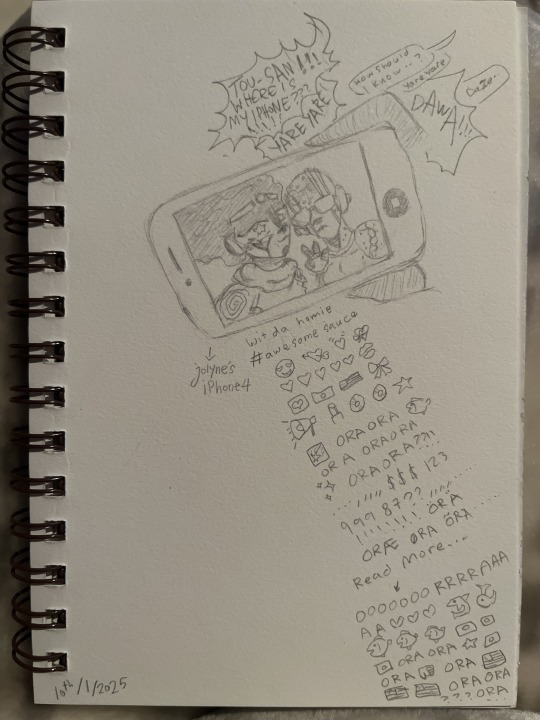 TOU-SAN!!!
WHERE IS
MY IPHONE???
!!!
YARE YARE
DAWA!!!
How should
I know...?
Yare yare
Daze..
wit da homie
#awesome sauce
jolyne's
iPhone4
ORA ORA
ORA ORAORA
ORAORA???!
$$$ 123
999 87??
!!!!!!!! ÖRÄ
ORÆ ØRA ÖRA
Read More...
OOOOOOO RRRRAAA
AA
ORA ORA
ORA ORA
ORA ORA
???ORA
10th/1/2025